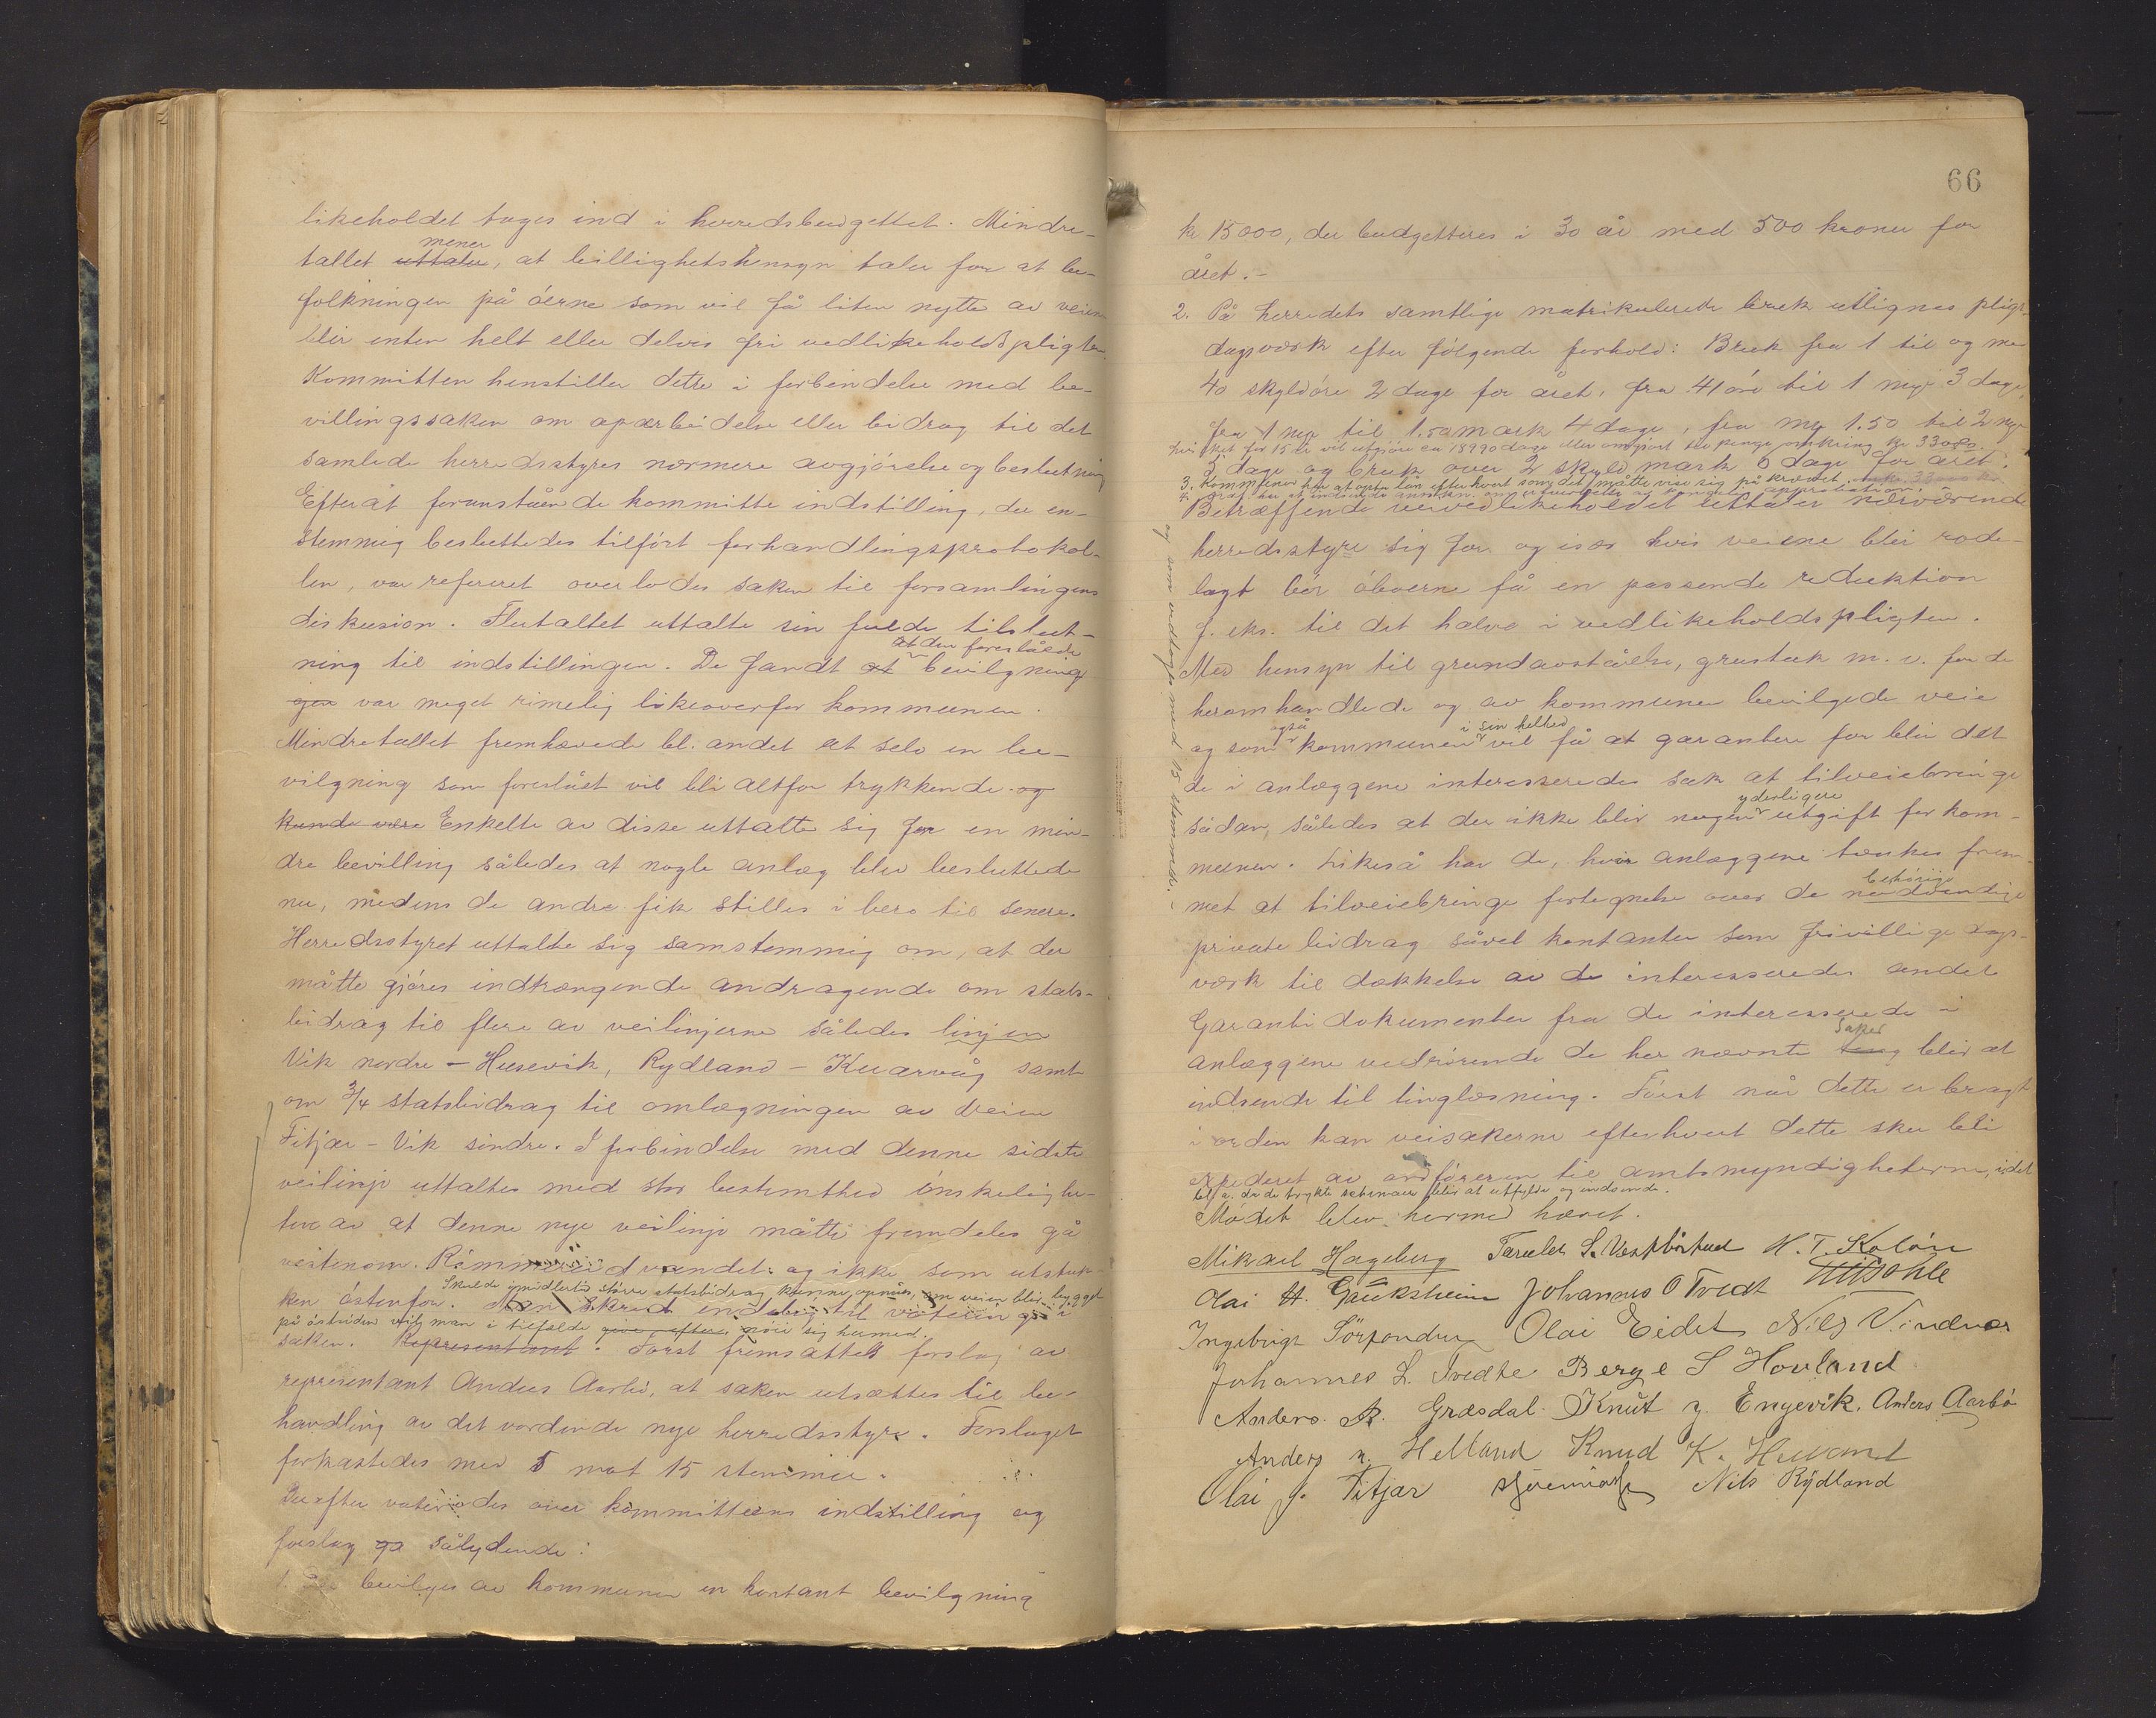 likeholdet tages ind i herredsbudgettet. Mindre-
mener
tallet uttaler, at billighetshensyn taler for at be-
folkningen på öerne som vil få liten nytte av veiene
blir enten helt eller delvis fri vedlikeholdspligten.
Kommitten henstiller dette i forbindelse med be-
villingssaken om oparbeidelse eller bidrag til det
samlede herredsstyres nærmere avgjörelse og beslutning
Efterat foranstående kommitte indstilling, der en-
stemmig besluttedes tilfört forhandlingsprotokol-
len, var referert overlodes saken til forsamlingens
diskusion. Flertallet uttalte sin fulde tilslut-
at den foreslåede
ning til indstillingen. De fandt at bevilgning
var meget rimelig likeoverfor kommunen.
Mindretallet fremhævede bl. andet at selv en be-
vilgning som foreslået vil bli altfor trykkende og
kunde være Enkelte av disse uttalte sig for en min-
dre bevilling således at nogle anlæg blev besluttede
nu, medens de andre fik stilles i bero til senere.
Herredsstyret uttalte sig samstemmig om, at der
måtte gjöres indtrængende andragende om stats-
bidrag til flere av veilinjerne således linjen
Vik nordre - Husevik, Rydland - Kuarvåg samt
om 3/4 statsbidrag til omlægningen av veien
Fitjar - Vik söndre. I forbindelse med denne sidste
veilinje uttaltes med stor bestemthed önskelighe-
ten av at denne nye veilinje måtte fremdeles gå
vestenom vandet og ikke som utstuk-
Skulde imidlertid större statsbidrag kunne opnåes, om veien blir bygget
ken östenfor. Man skred endelig til votering i
på östsiden vil man i tilfælde give efter nöie sig hermed.
saken. Representant. Först fremsattes forslag av
representant Anders Aarbö, at saken utsættes til be-
handling av det vordende nye herredsstyre. Forslaget
forkastedes med 5 mot 15 stemmer.
Derefter voteredes over kommitteens indstilling og
forslag sålydende:
1. Der bevilges av kommunen en kontant bevilgning
66
kr 15000, der budgetteres i 30 år med 500 kroner for
året.-
2. På herredets samtlige matrikulerede bruk utlignes pligt-
dagsværk efter fölgende forhold: Bruk fra 1 til og med
40 skyldöre 2 dage for året, fra 41 öre til 1 mark 3 dage,
fra 1 mrk til 1.50 mark 4 dage, fra mrk 1.50 til 2 mrk
hvilket for 15 år vil utgjöre ca 18990 dage eller omgjort til penge omkring kr 33000.
5 dage og bruk over 2 skyld mark 6 dage for året.
3. Kommunen har at opta lån efterhvert som det måtte vise sig påkrævet
Betræffende veivedlikeholdet uttaler nærværende
herredsstyre sig for og især hvis veiene blir rode-
lagt bör öboerne få en passende reduktion
f. eks. til det halve i vedlikeholdspligten.
Med hensyn til grundavståelse, grustak m. v. for de
heromhandlede og av kommunen bevilgede veie
også i sin helhed
og som kommunen vil få at garantere for blir det
de i anlæggene interesseredes sak at tilveiebringe
yderligere
sådan, således at der ikke blir nogen utgift for kom-
munen. Likeså har de, hvor anlæggene tænkes frem-
behörige
met at tilveiebringe fortegnelse over de nødvendige
private bidrag såvel kontanter som frivillige dags-
værk til dækkelse av de interesseredes andel
Garanti dokumenter fra de interesserede i
saker
anlæggene vedrörende de her nævnte blir at
indsende til tinglæsning. Först når dette er bragt
i orden kan veisakerne efterhvert dette sker bli
expederet av ordföreren til amtsmyndigheterne, idet
bl. a. de de trykte schemaer blir at utfylde og indsende.
Mödet blev hermed hævet.
og som vedtages med 15 stemmer.-
Mikael Hageberg Taraldr S. Vestböstad H. T. Kolön
Olai H. Grüksheim Johannes O Tvedt
Ingebrigt Sörfonden Olai Eidet Nils Vindnæs
Johannes L. Tvedte Berge S Hovland
Anders A. Græsdal. Knut J. Engevik. Anders Aarbö
Anders N. Helland Knud K. Helland
Olai J. Fitjar Nils Rydland